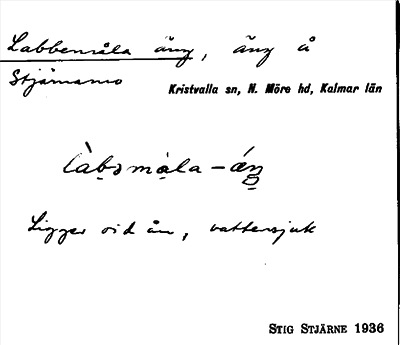 Labbemåla äng, äng å
Stjärnamo
Kristvalla sn, N. Möre hd, Kalmar län
làbəmåla-áŋ
Ligger vid ån, vattensjuk
STIG STJÄRNE 1936